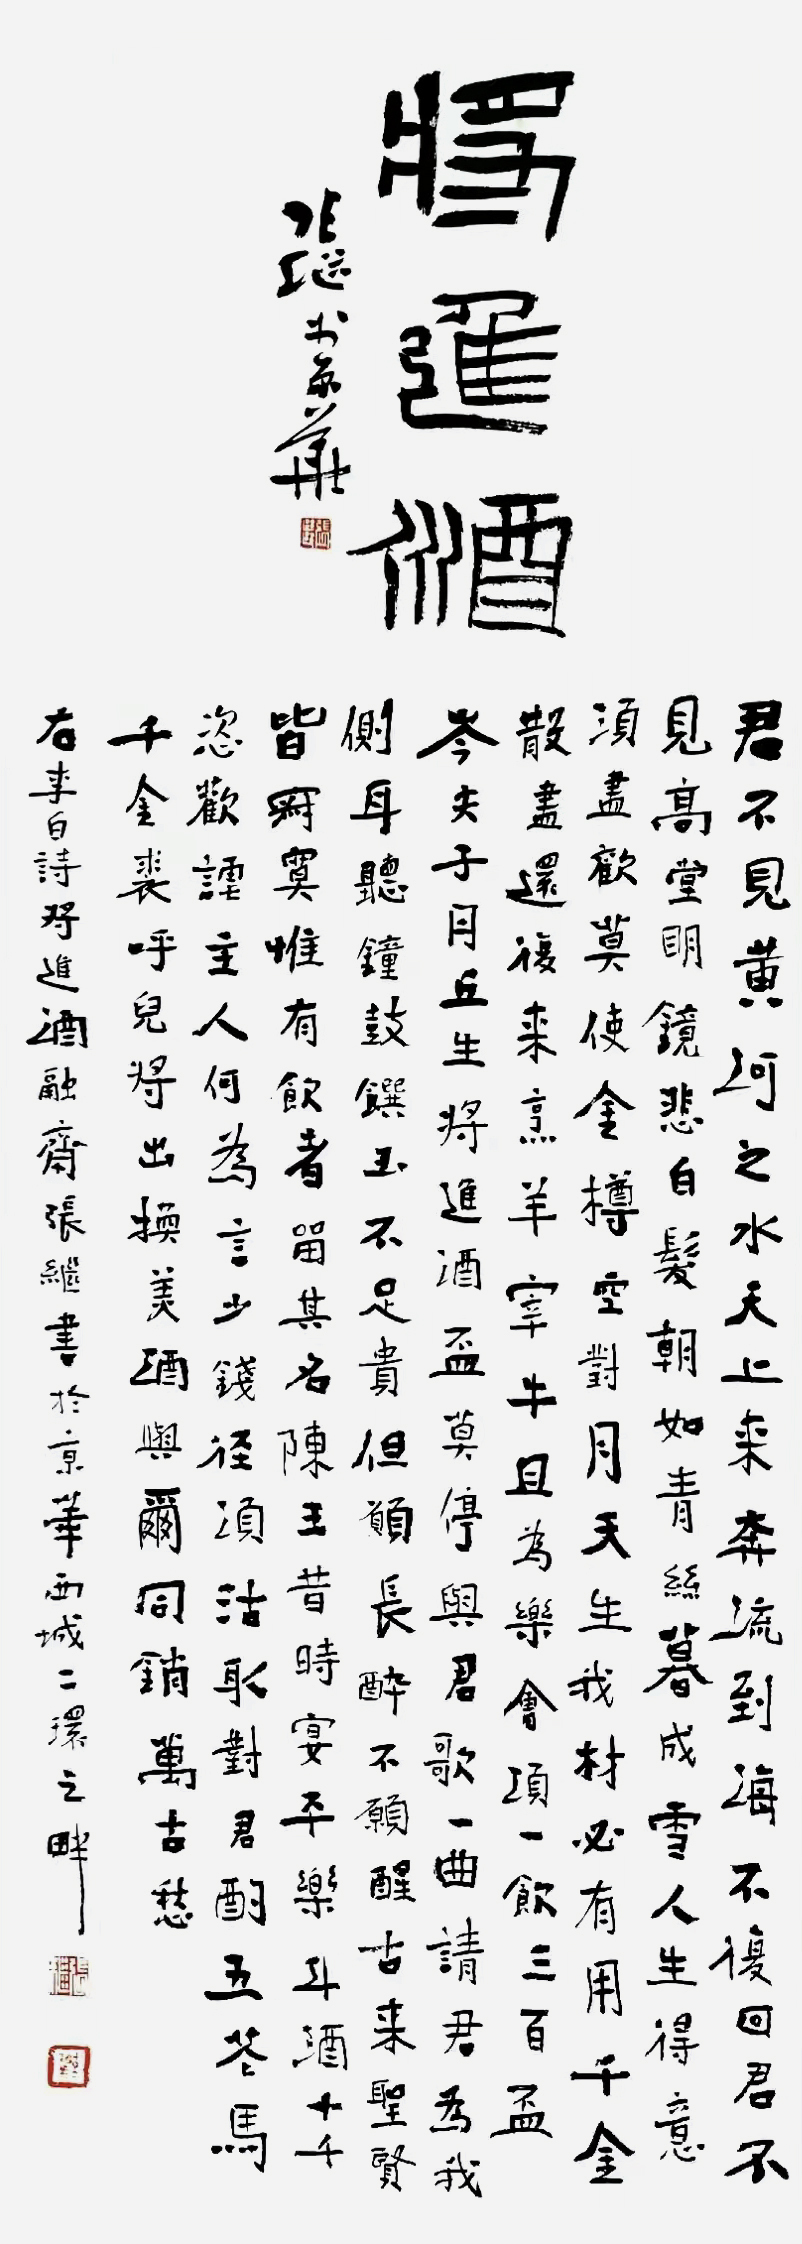 將進酒
張繼书京華
君不見黃河之水天上来奔流到海不復回君不
見高堂明鏡悲白髮朝如青絲暮成雪人生得意
須盡歡莫使金樽空對月天生我材必有用千金
散盡還復来烹羊宰牛且為樂會須一飲三百盃
岑夫子丹丘生将進酒盃莫停與君歌一曲請君為我
側耳聽鐘鼓饌玉不足貴但願長醉不願醒古来聖賢
皆寂寞惟有飲者留其名陳王昔時宴平樂斗酒十千
恣歡謔主人何為言少錢径須沽取對君酌五花馬
千金裘呼兒将出換美酒與爾同銷萬古愁
右李白詩将進酒融齋張繼書於京華西城二環之畔